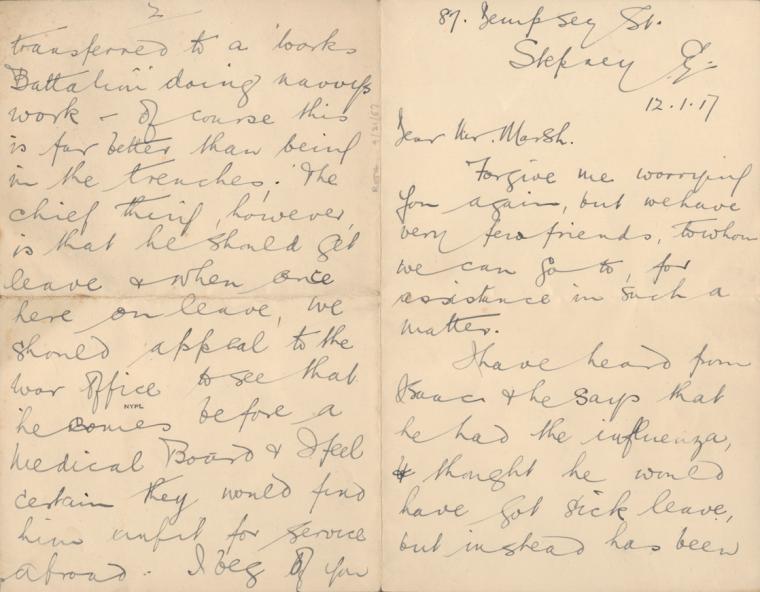 87. Dempsey St.
Stepney E.
12.1.17
Dear Mr. Marsh.
Forgive me worrying
you again, but we have
very few friends, to whom
we can go to, for
assistance in such a
matter.
I have heard from
Isaac & he says that
he had the influenza,
& thought he would
have got sick leave,
but instead has been
2
transferred to a 'works
Battalion' doing navvys
work - Of course this
is far better than being
in the trenches. The
chief thing, however,
is that he should get
leave & when once
here on leave, we
should appeal to the
war office to see that
he comes before a
Medical Board & I feel
certain they would find
him unfit for service
abroad. I beg of you
NYPL